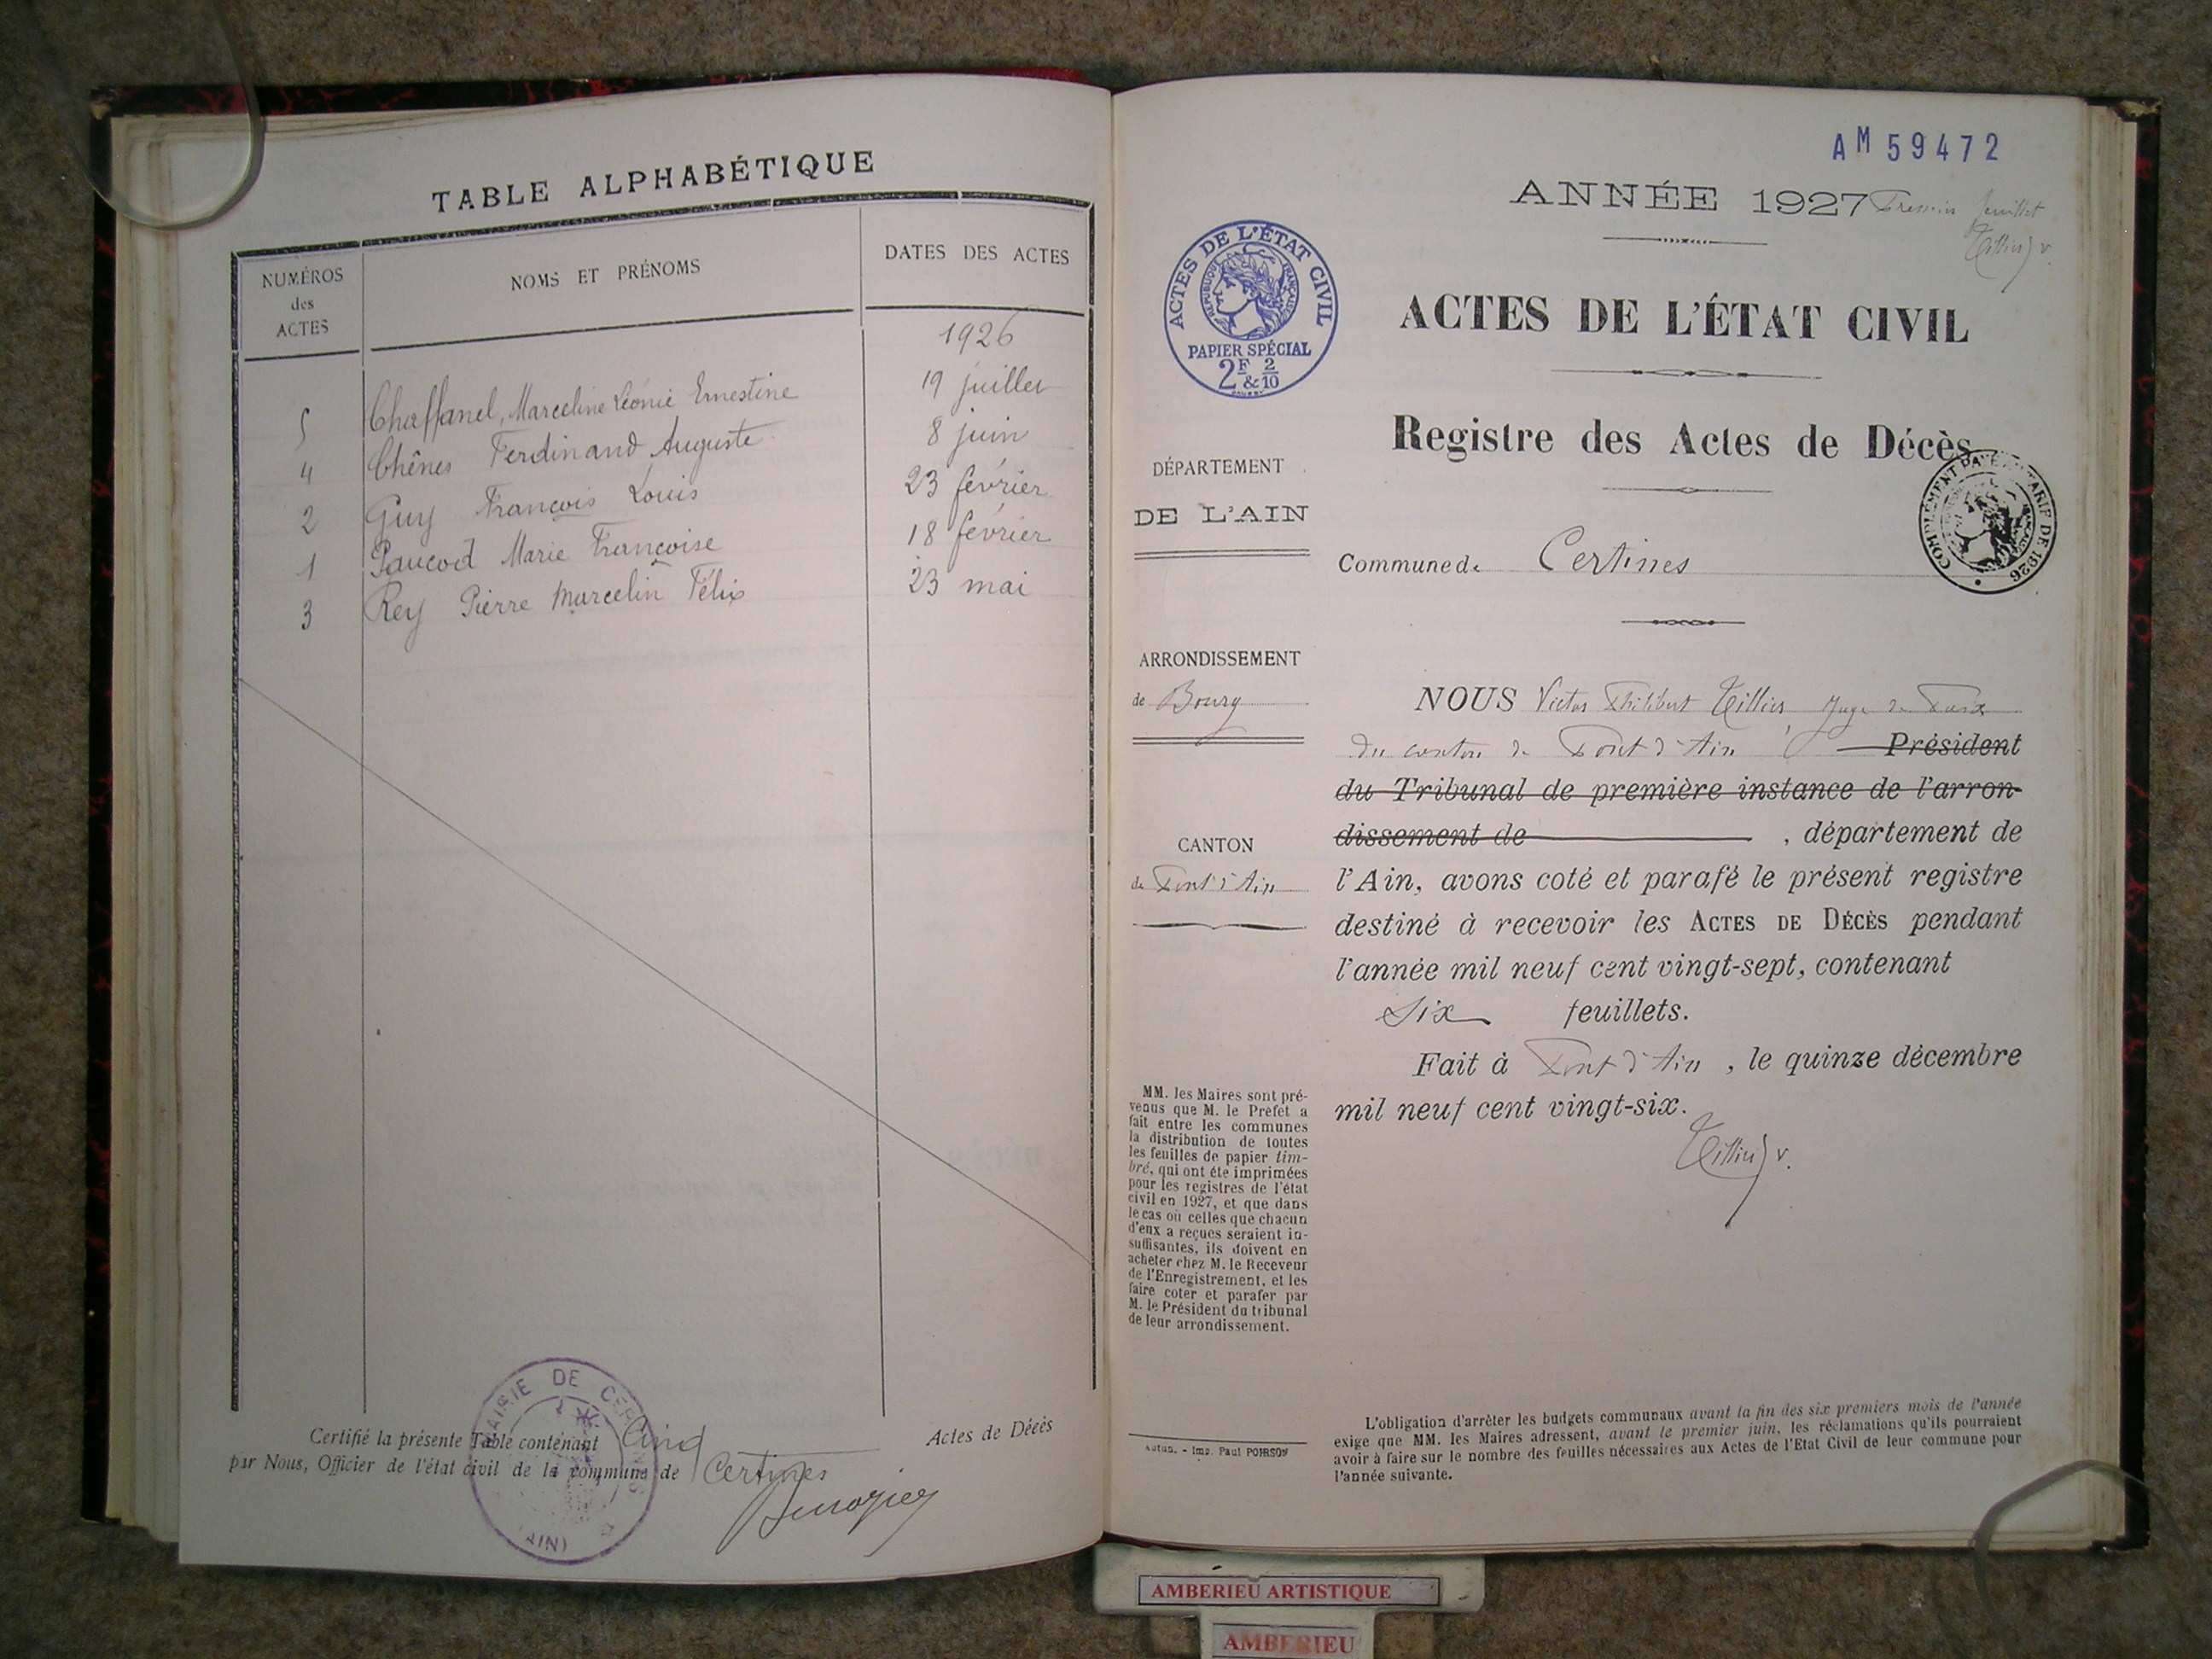 TABLE ALPHABÉTIQUE
NUMÉROS
des
ACTES
NOMS ET PRÉNOMS
DATES DES ACTES
1926
5 Chaffanel, Marceline Léonie Ernestine 19 juillet
4 Chênes Ferdinand Auguste 8 juin
2 Guy François Louis 23 février
1 Paucod Marie Françoise 18 février
3 Rey Pierre Marcelin Félix 23 mai
Certifié la présente Table contenant Cinq Actes de Décès
par Nous, Officier de l'état civil de la commune de Certines
MAIRIE DE CERTINES
(AIN)
AM 59472
ANNÉE 1927 Premier feuillet
Tillier v.
ACTES DE L'ÉTAT CIVIL
RÉPUBLIQUE FRANÇAISE
PAPIER SPÉCIAL
2F & 2/10
ACTES DE L'ÉTAT CIVIL
Registre des Actes de Décès
COMPLÉMENT PAYÉ TARIF DE 1926
DÉPARTEMENT
DE L'AIN
Commune de Certines
ARRONDISSEMENT
de Bourg
CANTON
de Pont d'Ain
NOUS Victor Philibert Tillier Juge de Paix
du canton de Pont d'Ain Président
du Tribunal de première instance de l'arron-
dissement de , département de
l'Ain, avons coté et parafé le présent registre
destiné à recevoir les ACTES DE DÉCÈS pendant
l'année mil neuf cent vingt-sept, contenant
Six feuillets.
Fait à Pont d'Ain, le quinze décembre
mil neuf cent vingt-six.
Tillier v.
MM. les Maires sont pré-
venus que M. le Préfet a
fait entre les communes
la distribution de toutes
les feuilles de papier tim-
bré, qui ont été imprimées
pour les registres de l'état
civil en 1927, et que dans
le cas où celles que chacun
d'eux a reçues seraient in-
suffisantes, ils doivent en
acheter chez M. le Receveur
de l'Enregistrement, et les
faire coter et parafer par
M. le Président du tribunal
de leur arrondissement.
Autun. - Imp. Paul POIRSON
L'obligation d'arrêter les budgets communaux avant la fin des six premiers mois de l'année
exige que MM. les Maires adressent, avant le premier juin, les réclamations qu'ils pourraient
avoir à faire sur le nombre des feuilles nécessaires aux Actes de l'Etat Civil de leur commune pour
l'année suivante.
AMBERIEU ARTISTIQUE
AMBERIEU